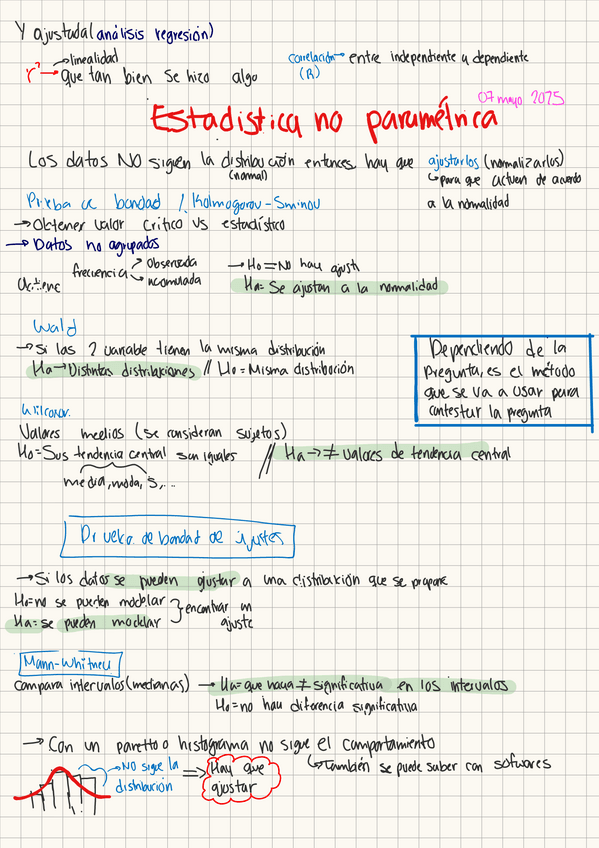 Y ajustada(análisis regresión)
→linealidad
r² → que tan bien se hizo algo
correlación→ entre independiente y dependiente
(R)
07 mayo 2025
Estadistica no paramétrica
Los datos NO siguen la distribución entonces hay que ajustarlos (normalizarlos)
(normal)
↳para que actuen de acuerdo
a la normalidad
Prueba de bondad / Kolmogorov-Smirnov
→Obtener valor critico vs estadístico
→ Datos no agrupados
frecuencia
Observada
acumulada
→Ho=No hay ajuste
Ha= Se ajustan a la normalidad
Wald
→Si las 2 variable tienen la misma distribución
Ha→Distintas distribuciones // Ho=Misma distribución
Dependiendo de la
Pregunta, es el método
que se va a usar para
contestar la pregunta
Wilcoxon
Valores medios (se consideran sujetos)
Ho=Sus tendencia central son iguales // Ha→≠ valores de tendencia central
media, moda, s,...
Prueba de bondad de ajustes
→Si los datos se pueden ajustar a una distribución que se propone
Ho=no se pueden modelar
Ha=se pueden modelar
encontrar un
ajuste
Mann-Whitney
Compara intervalos(medianas) → Ha=que haya ≠ significativa en los intervalos
Ho=no hay diferencia significativa
→ Con un paretto o histograma no sigue el comportamiento
↳También se puede saber con softwares
→NO sigue la
distribución
⇒ Hay que
ajustar